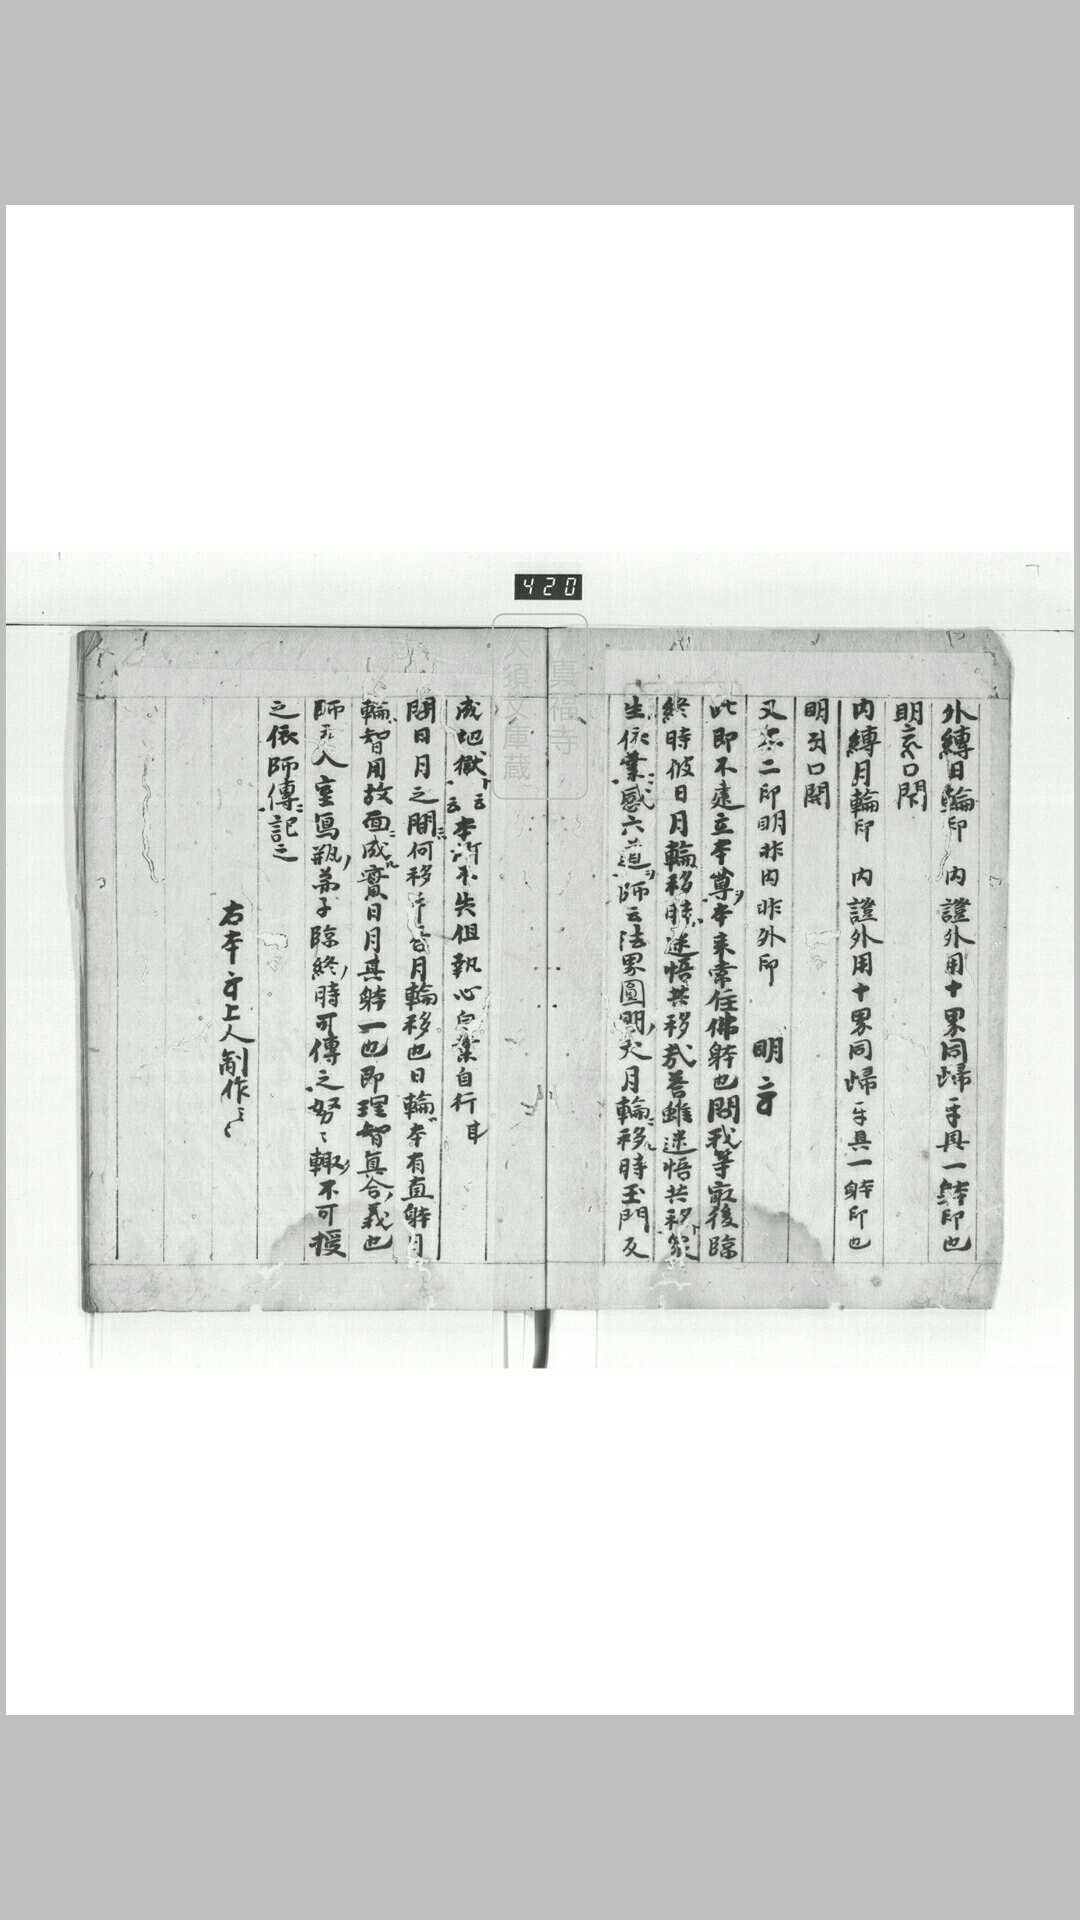 420
真福寺
大須文庫蔵
外縛日輪印 内證外用十界同歸 具一躰印也
明 口閇
内縛月輪印 内證外用十界同歸 具一躰印也
明 口開
又 二印明非内非外印 明
此即不遠立本尊本来常住佛躰也問我等最後臨
終時彼日月輪移時迷悟共移 善雖迷悟共移
生依業感六道師云法界圓明 月輪移時 門反
成地獄云云本 不失但執心 業自行耳
問日月之間何移 月輪移也日輪本有直躰月
輪智用故面成實日月其躰一也即理智真合義也
師 入室寫瓶弟子臨終時可傳之努々輙不可授
之依師傳記之
右本 上人制作